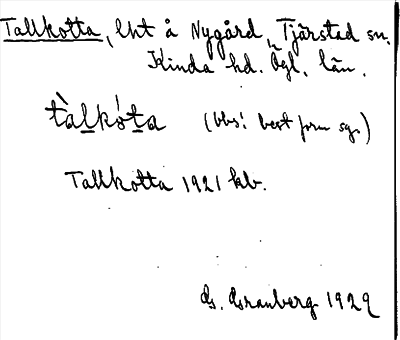 Tallkotta, lht å Nygård, Tjärstad sn.
Kinda hd. Ögl. län.
tàlkóta (obs! best form sg.)
Tallkotta 1921 kb.
G. Granberg 1929